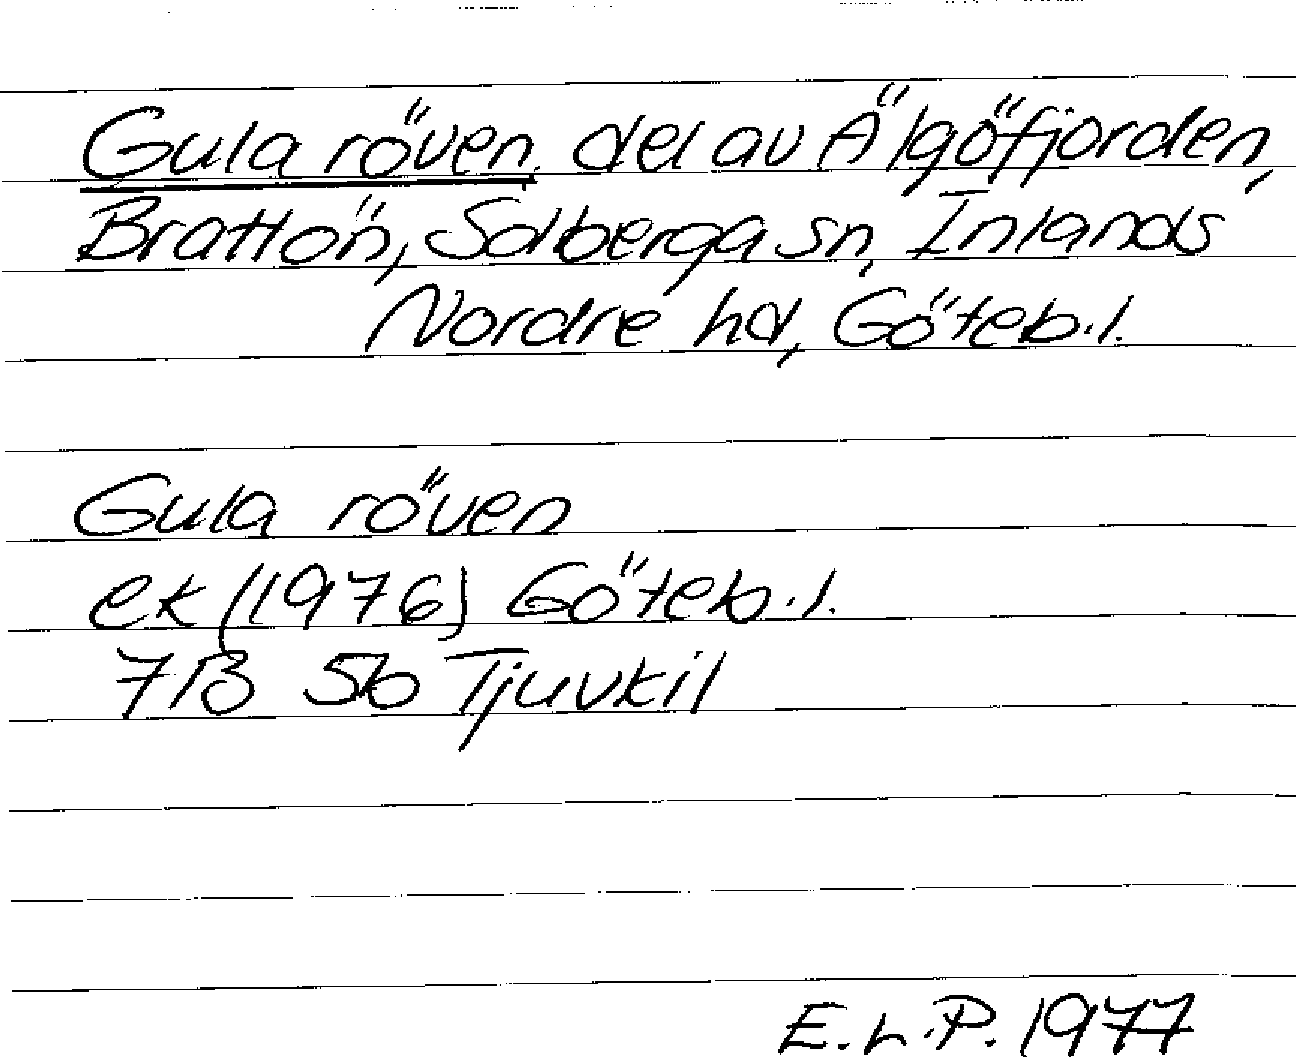 Gula röven, del av Älgöfjorden,
Brattön, Solberga sn, Inlands
Nordre hd, Göteb.l.
Gula röven
ek (1976) Göteb.l.
7B 5b Tjuvkil
E.L.P. 1977